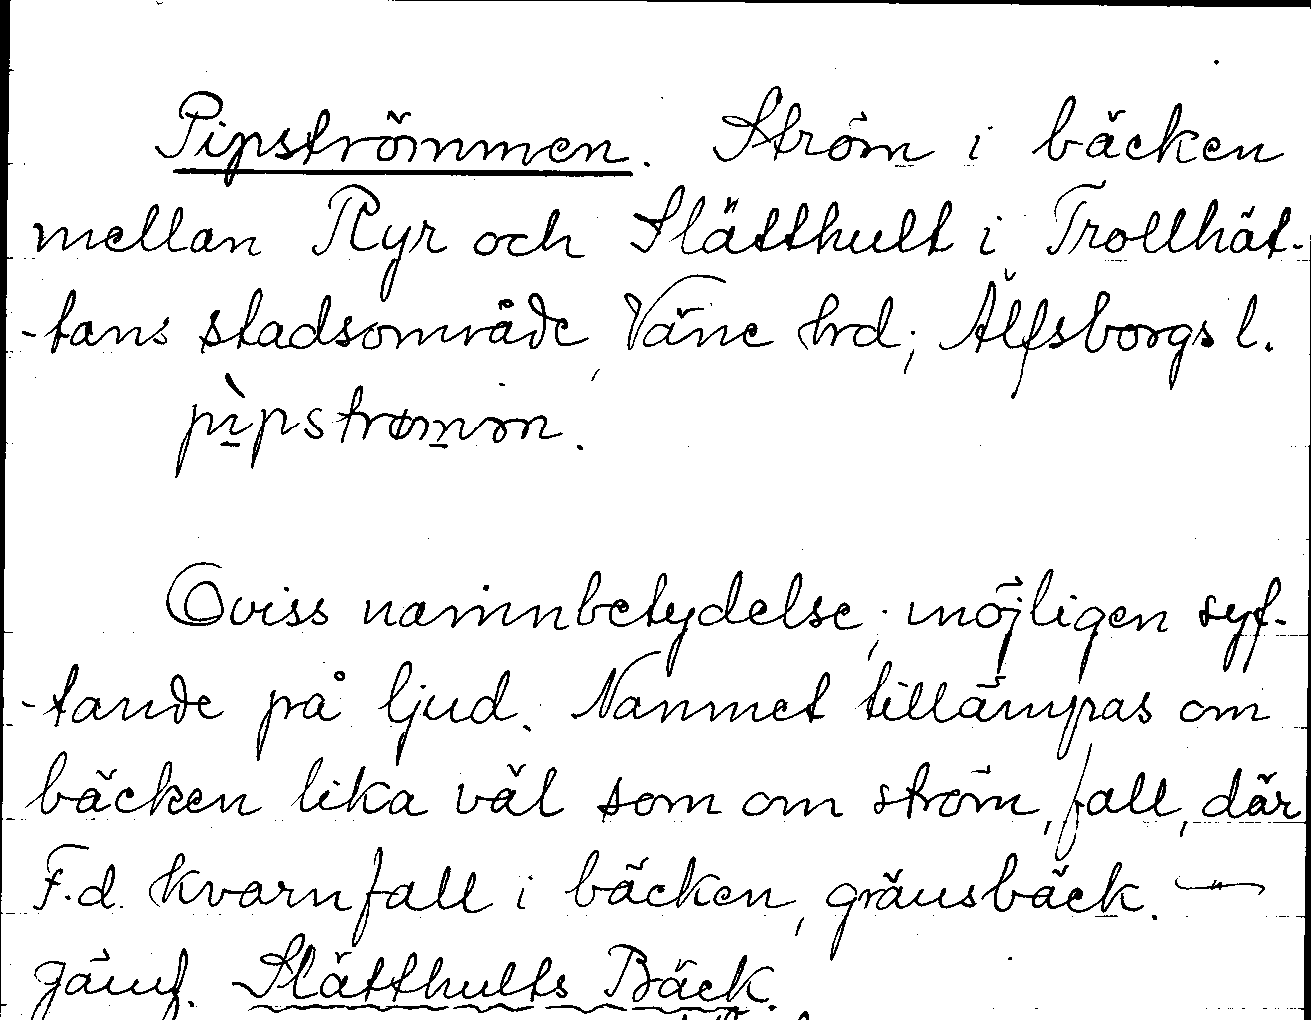 Pipströmmen. Ström i bäcken
mellan Ryr och Slätthult i Trollhät-
-tans stadsområde, Väne hrd; Älfsborgs l.
pìpstrømən.
Oviss namnbetydelse; möjligen syf-
-tande på ljud. Namnet tillämpas om
bäcken lika väl som om ström, fall, där
F.d. kvarnfall i bäcken, gränsbäck. —
Jämf. Slätthults Bäck.